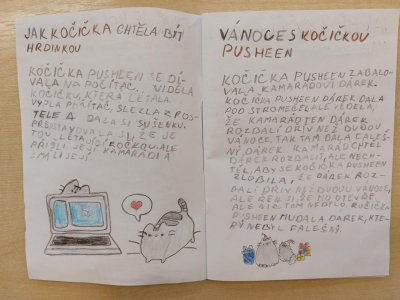 JAK KOČIČKA CHTĚLA BÍT
HRDINKOU
KOČIČKA PUSHEEN SE DÍ-
VALA NA POČÍTAČ. VIDĚLA
KOČIČKU, KTERÁ LÉTALA.
VYPLA POČÍTAČ, SLEZLA Z POS-
TELE A DALA SI SUŠENKU.
PŘEDSTAVOVALA SI, ŽE JE
TOU LÉTAJÍCÍ KOČKOU, ALE
PŘIŠLI JEJÍ KAMARÁDI A
SMÁLI SE JÍ
VÁNOCE S KOČIČKOU
PUSHEEN
KOČIČKA PUSHEEN ZABALO-
VALA KAMARÁDOVI DÁREK.
KOČIČKA PUSHEEN DÁREK DALA
POD STROMEČEK, ALE VĚDĚLA,
ŽE KAMARÁD TEN DÁREK
ROZDALÍ DŘÍV NEŽ BUDOU
VÁNOCE, TAK TAM DALA FALEŠ-
NÝ DÁREK. KAMARÁD CHTĚL
DÁREK ROZDALIT, ALE NECH-
TĚL, ABY SE KOČIČKA PUSHEEN
ZLOBILA, ŽE DÁREK ROZ-
DALÍ DŘÍV NEŽ BUDOU VÁNOCE,
ALE NIC TAM NEBYLO. KOČIČKA
PUSHEEN MU DALA DÁREK, KTE-
RÝ NEBYL FALEŠNÝ.